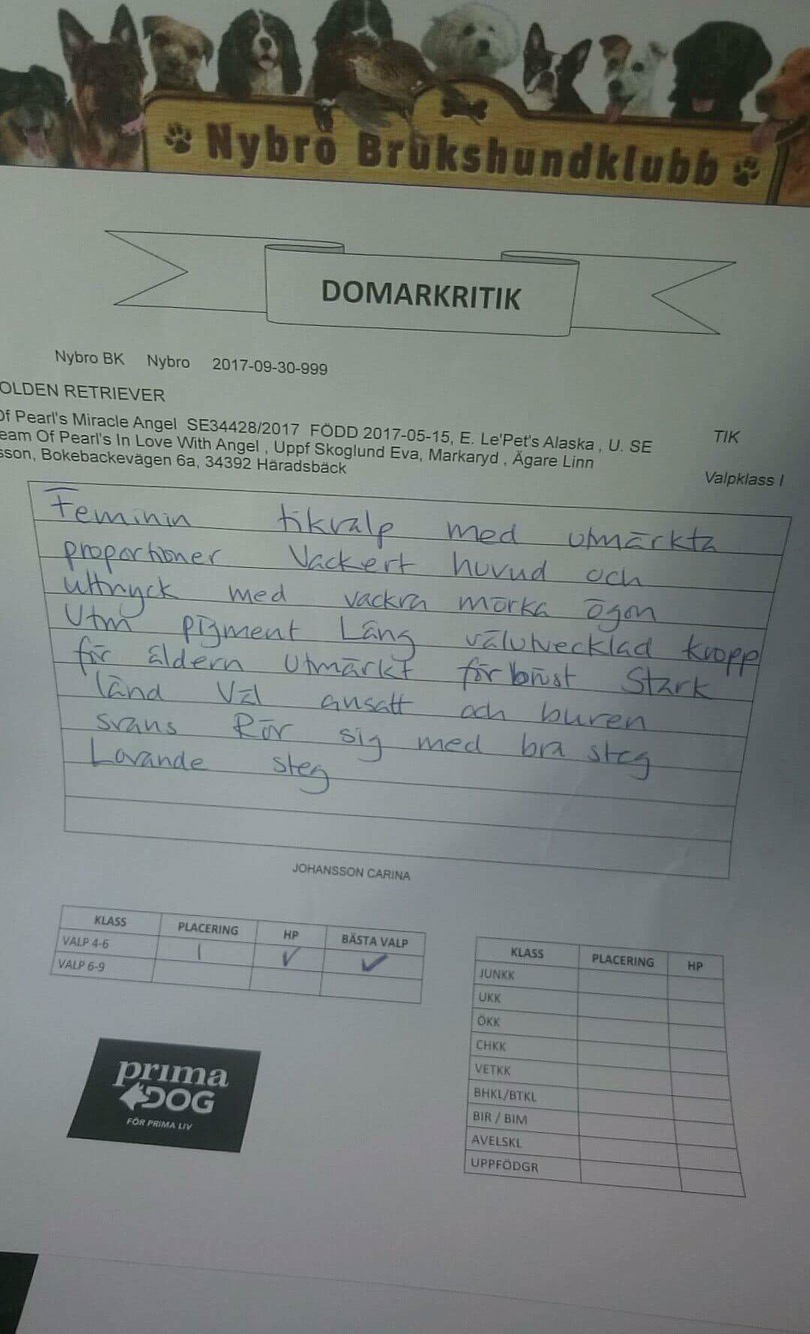 Nybro Brukshundklubb
DOMARKRITIK
Nybro BK Nybro 2017-09-30-999
OLDEN RETRIEVER
Of Pearl's Miracle Angel SE34428/2017 FÖDD 2017-05-15, E. Le'Pet's Alaska , U. SE TIK
eam Of Pearl's In Love With Angel , Uppf Skoglund Eva, Markaryd , Ägare Linn
sson, Bokebackevägen 6a, 34392 Häradsbäck Valpklass I
Feminin tikvalp med utmärkta
proportioner Vackert huvud och
uttryck med vackra mörka ögon
Utm pigment Lång välutvecklad kropp
för åldern Utmärkt förbröst Stark
länd Väl ansatt och buren
svans Rör sig med bra steg
Lovande steg
JOHANSSON CARINA
KLASS PLACERING HP BÄSTA VALP
VALP 4-6 1 ✓ ✓
VALP 6-9
KLASS PLACERING HP
JUNKK
UKK
ÖKK
CHKK
VETKK
BHKL/BTKL
BIR / BIM
AVELSKL
UPPFÖDGR
prima
DOG
FÖR PRIMA LIV